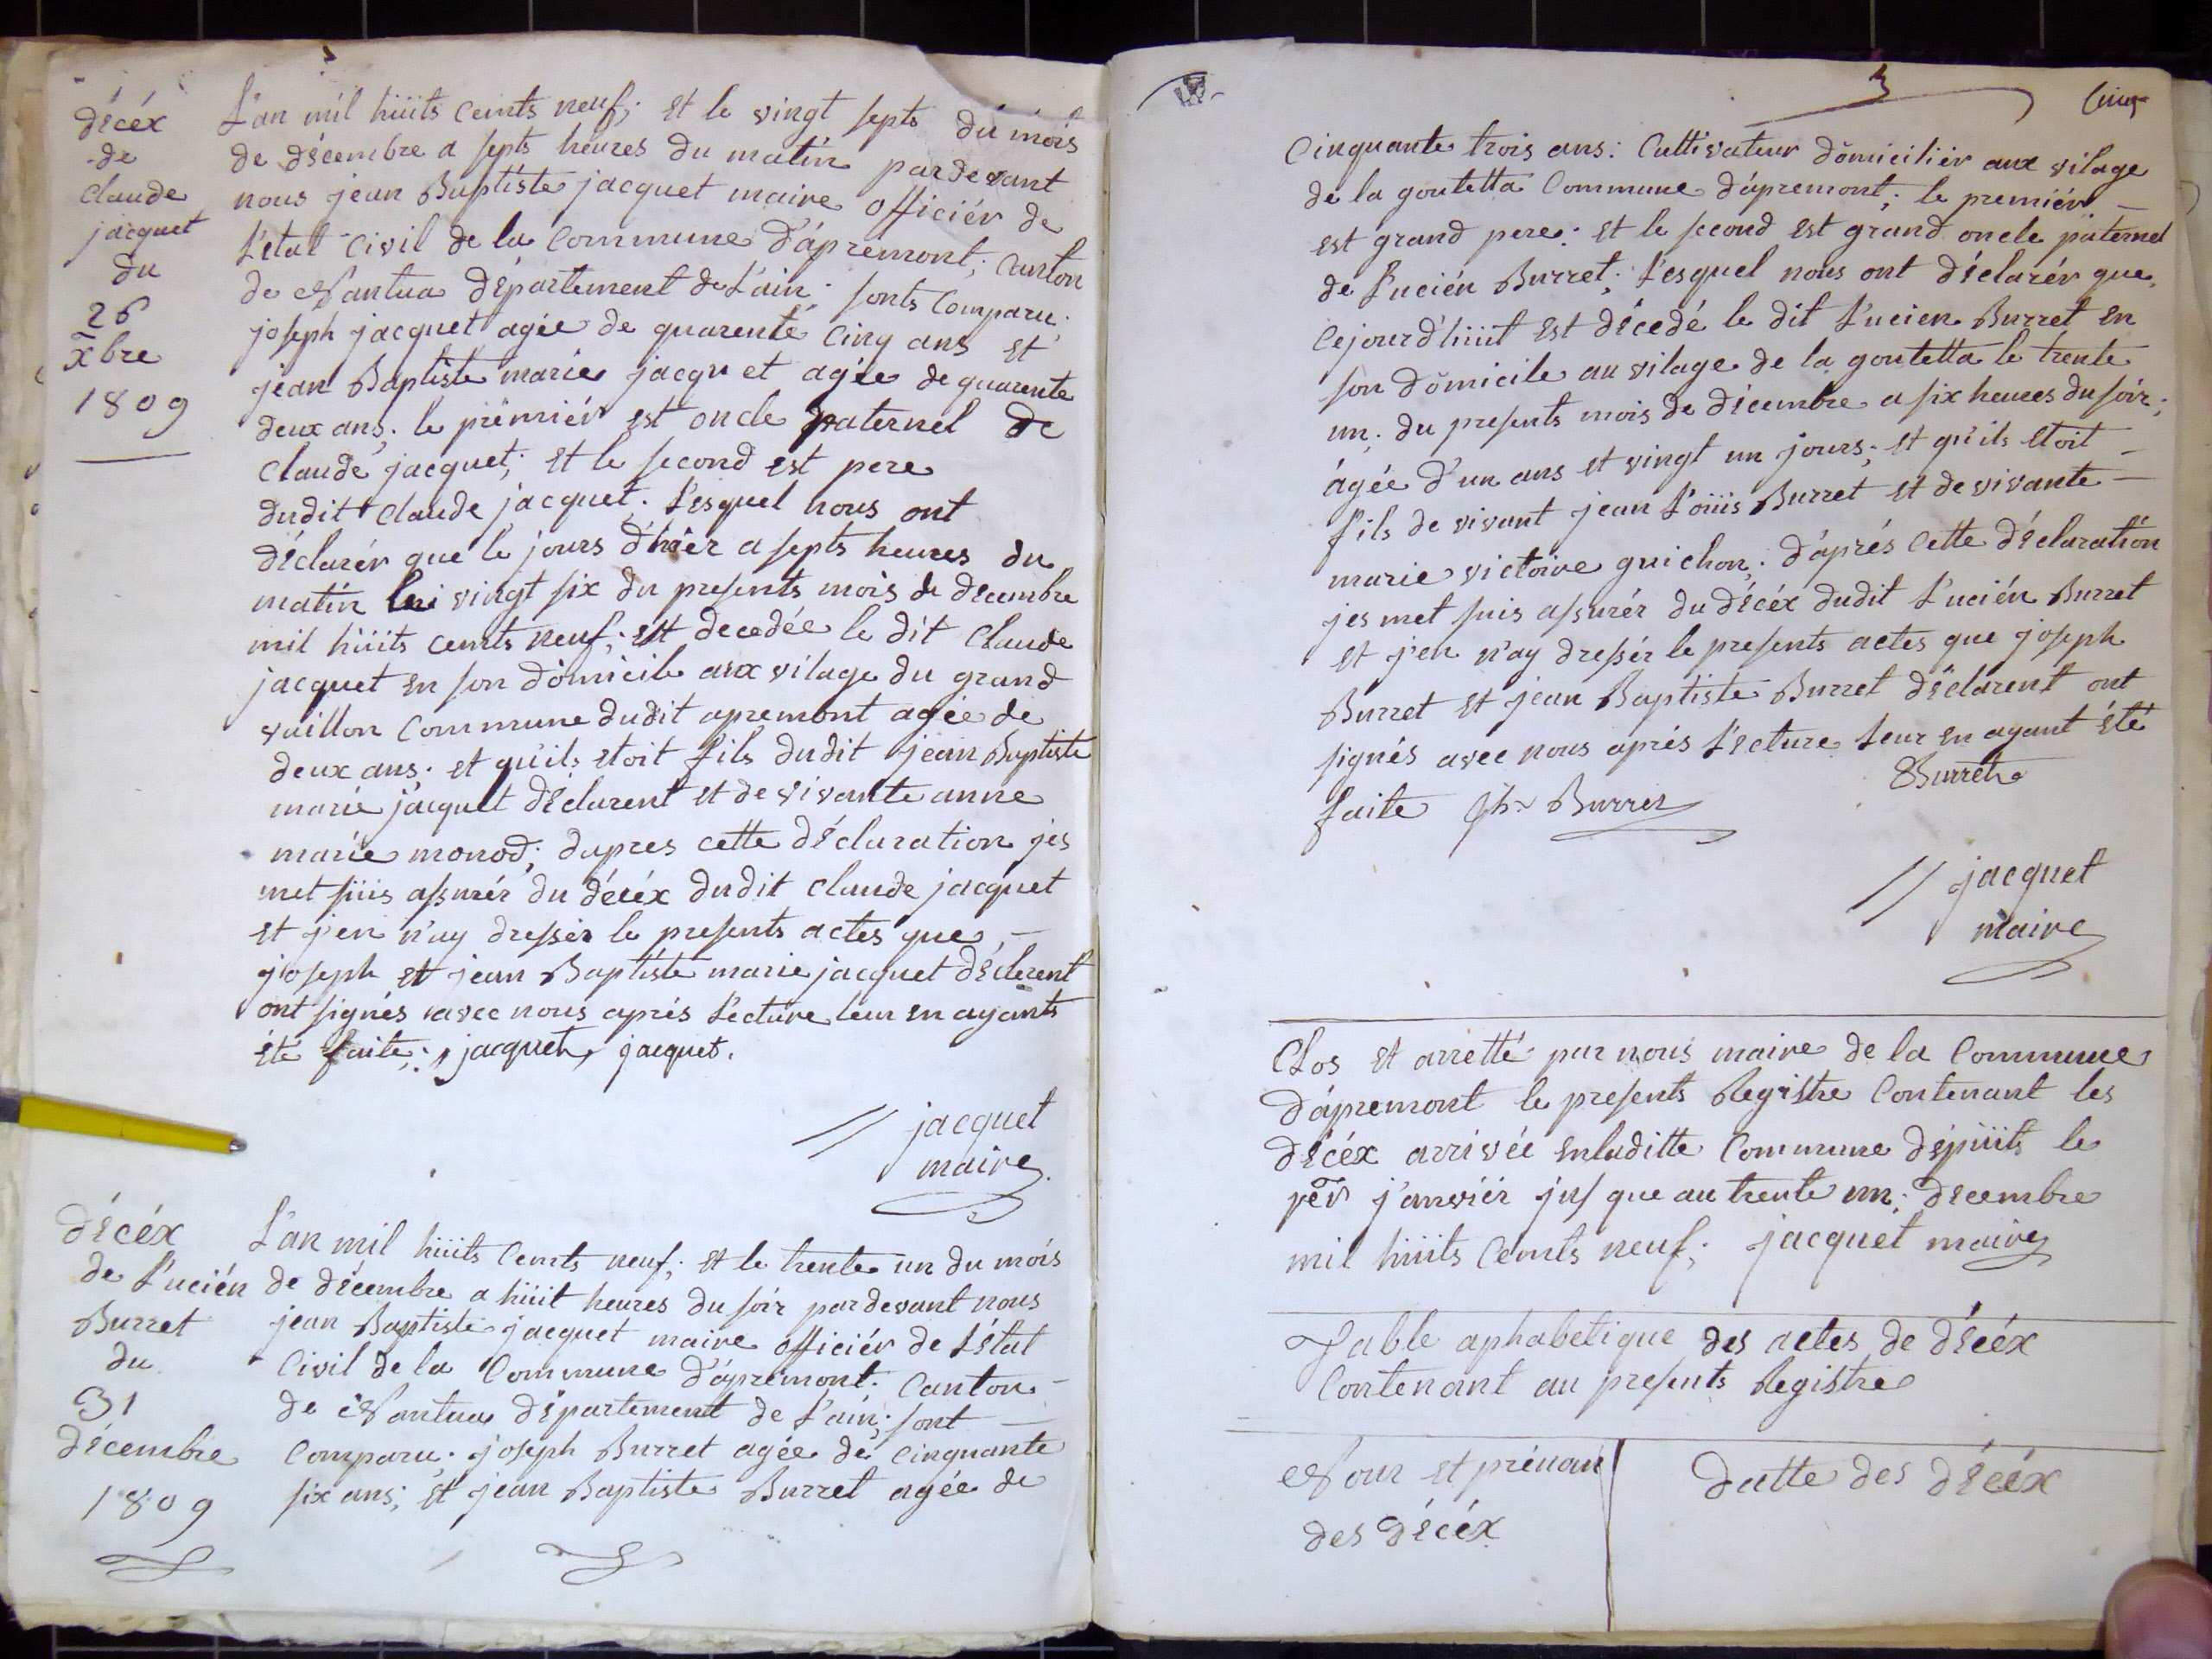 décéx
de
claude
jacquet
du
26
xbre
1809
L'an mil hüits cents neuf; et le vingt septs du mois
de décembre a septs heures du matin pardevant
nous jean Baptiste jacquet maire officiér de
L'etat Civil de la Commune d'ápremont; Canton
de Nantua département de L'ain; sonts Comparu;
joseph jacquet agée de quarente Cinq ans et
jean Baptiste marie jacquet agée de quarente
deux ans; le prémiér est oncle paternel de
Claude jacquet; et le second est pere
dudit Claude jacquet. L'esquel nous ont
déclarér que le jours d'hièr a septs heures du
matin vingt six du presents mois de décembre
mil hüits cents neuf; est decedée le dit Claude
jacquet en son domicile aux vilage du grand
vaillon Commune dudit apremont agée de
deux ans; et qu'ils etoit fils dudit jean Baptiste
marie jacquet déclarent et de vivante anne
marie monod; dapres cette déclaration jes
met süis assurér du décéx dudit claude jacquet
et j'en n'ay dressér le presents actes que —
joseph et jean Baptiste marie jacquet déclerent
ont signés avec nous aprés L'ecture leur en ayants
été faite; jacquet, jacquet.
// jacquet
maire
décéx
de L'ucién
Burret
du
31
décembre
1809
L'an mil hüits Cents neuf; et le trente un du mois
de décembre a hüit heures du soir pardevant nous
jean Baptiste jacquet maire officiér de L'état
Civil de la Commune d'ápremont. Canton —
de Nantua département de L'ain; sont —
Comparu; joseph Burret agée de Cinquante
six ans; et jean Baptiste Burret agée de
Cinq
Cinquante trois ans: Cultivateur domiciliér aux vilage
de la goutetta Commune d'ápremont; le premiér —
est grand pere; et le second est grand oncle paternel
de L'ucién Burret; L'esquel nous ont déclarér que
Cejourd'hüit est décedé le dit L'ucien Burret en
son domicile au vilage de la goutetta le trente
un; du presents mois de décembre a six heures du soir;
ágée d'un ans et vingt un jours; et qu'ils etoit —
fils de vivant jean L'oüis Burret et de vivante —
marie victoire guichon; d'áprés Cette déclaration
jes met suis assurér du décéx dudit L'ucién Burret
et j'en n'ay dressér le presents actes que joseph
Burret et jean Baptiste Burret déclarent ont
signés avec nous aprés L'ecture Leur en ayant été
faite Jh. Burret Burret
// jacquet
maire
Clos et arretté par nous maire de la Commune
D'ápremont le presents Registre Contenant les
décéx arrivée enladitte Commune dépüits le
per j'anviér jusque au trente un; décembre
mil hüits Cents neuf; jacquet maire
Table aphabetique des actes de décéx
Contenant au presents Registre
Nour et prénan
des décéx
Datte des décéx